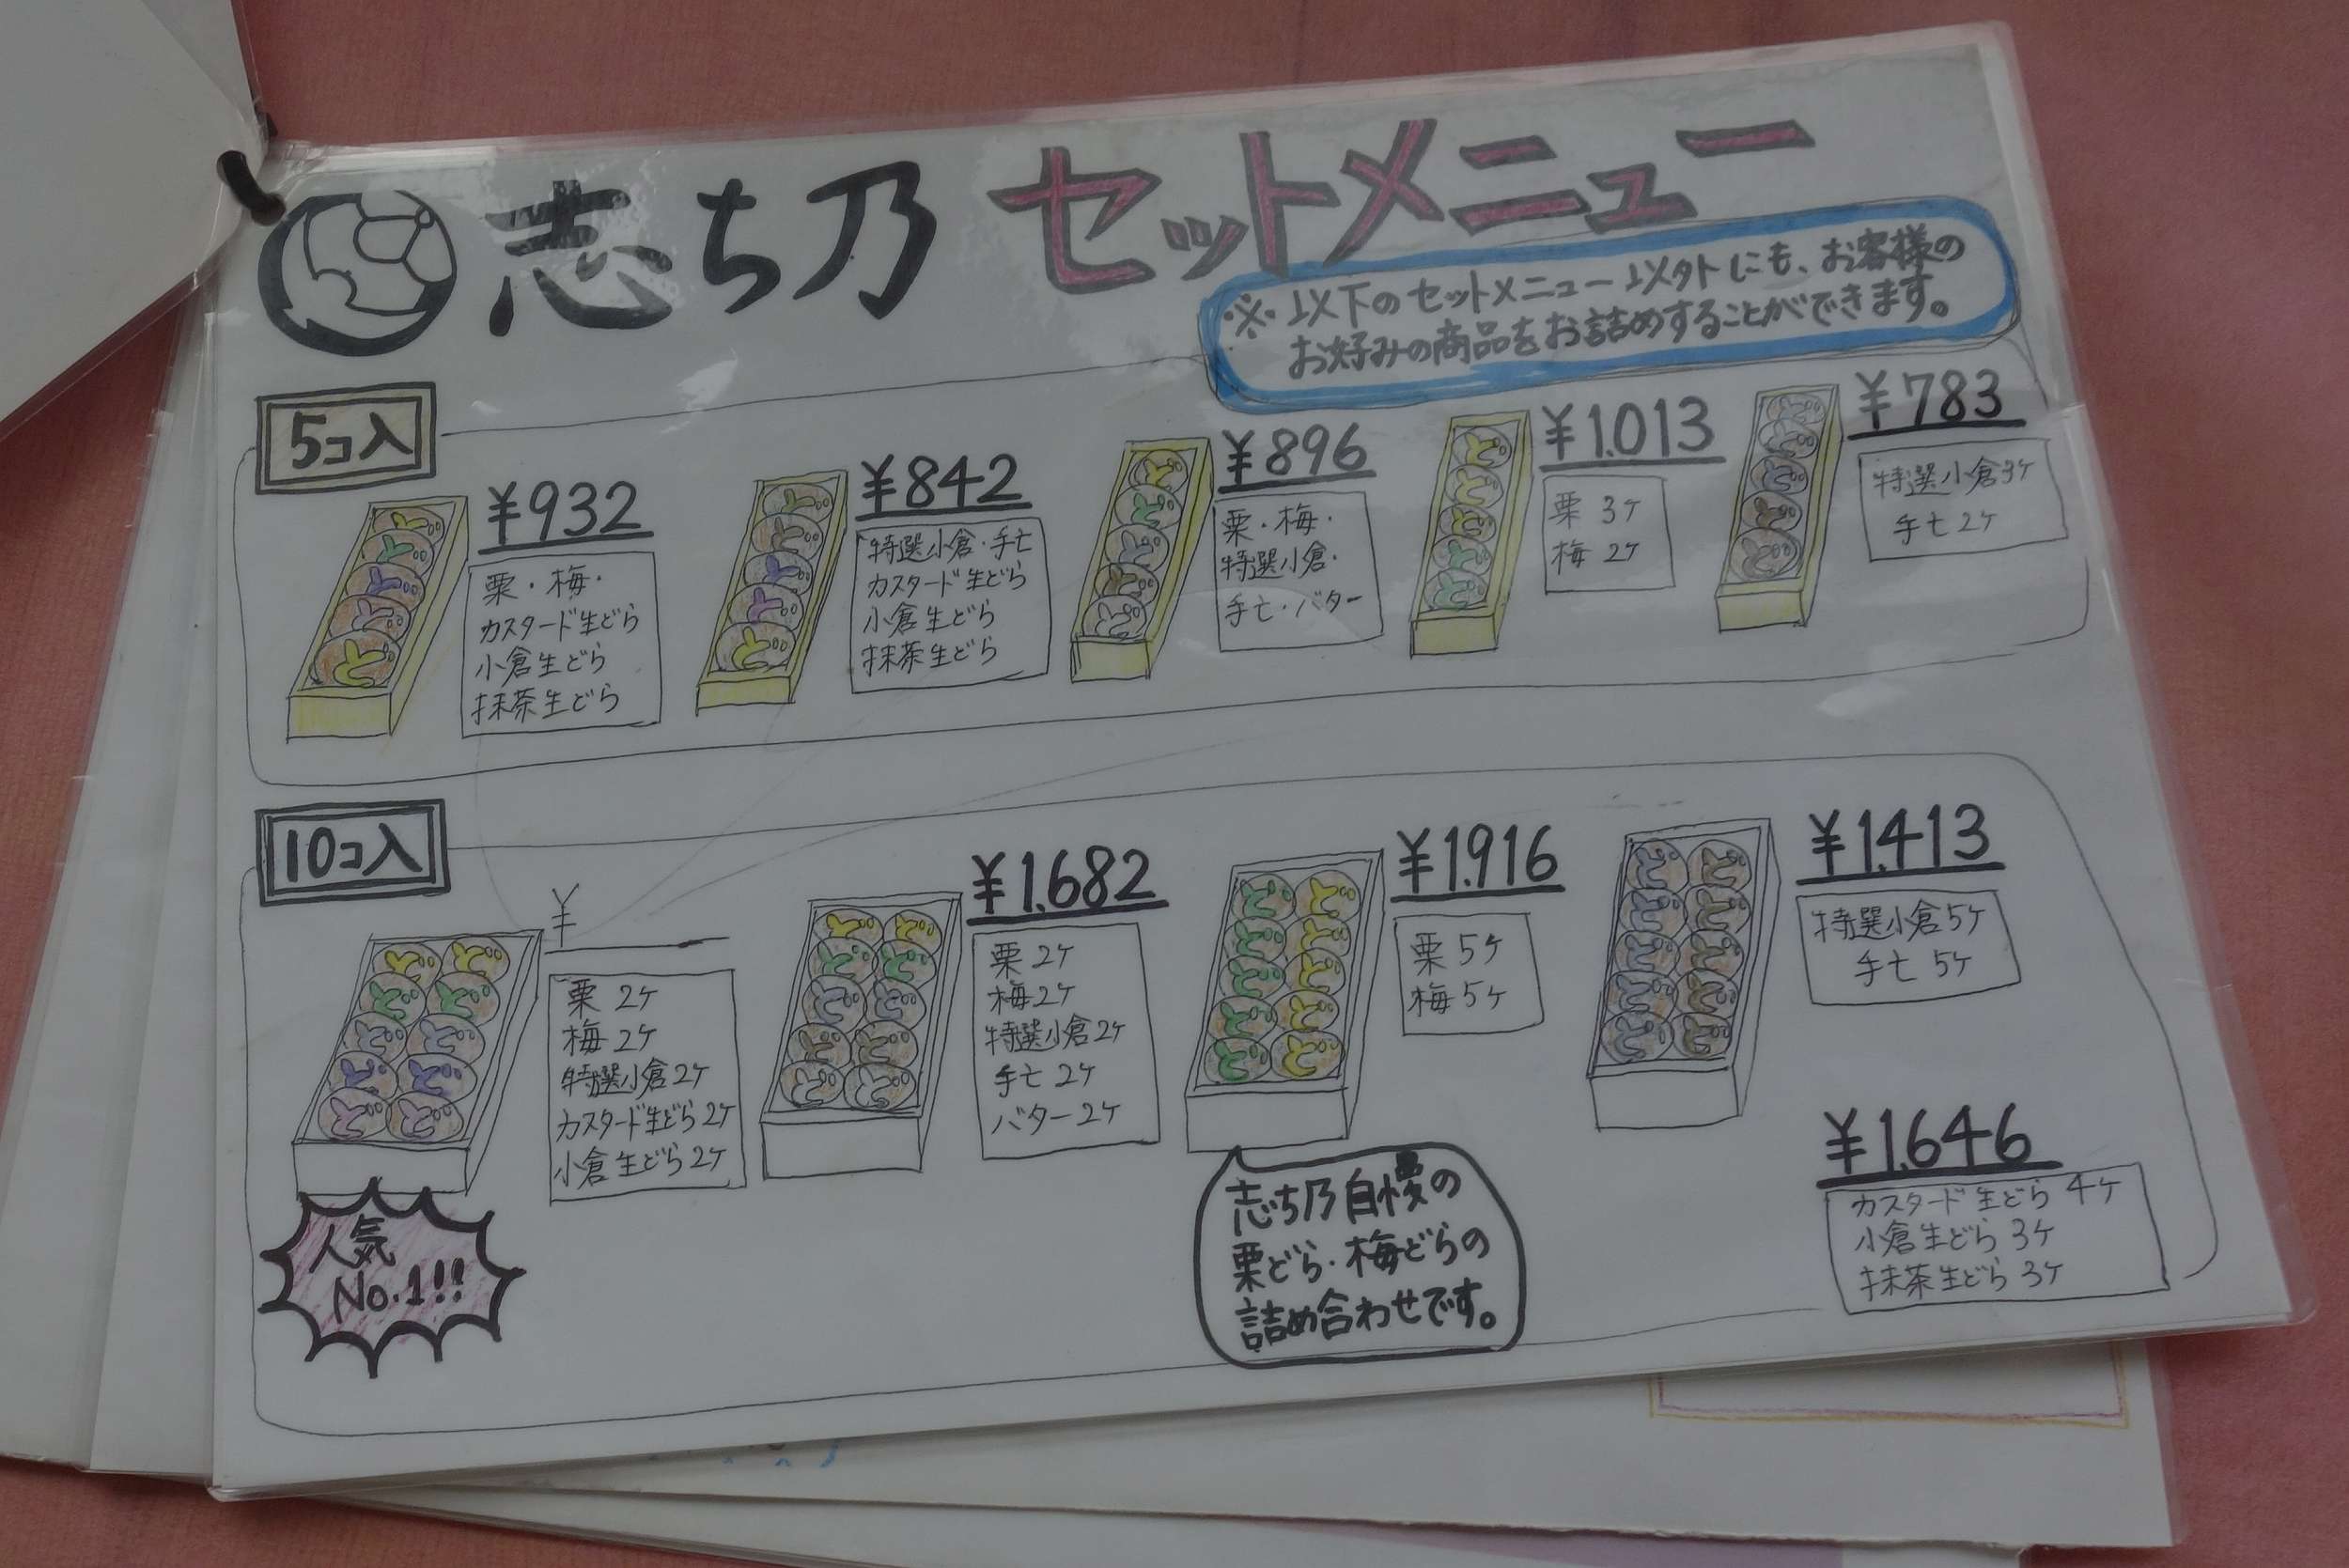 志ち乃 セットメニュー
※以下のセットメニュー以外にも、お客様の
お好みの商品をお詰めすることができます。
5コ入
¥932
栗・梅・
カスタード生どら
小倉生どら
抹茶生どら
¥842
特選小倉・手亡
カスタード生どら
小倉生どら
抹茶生どら
¥896
栗・梅・
特選小倉・
手亡・バター
¥1.013
栗 3ヶ
梅 2ヶ
¥783
特選小倉3ヶ
手亡 2ヶ
10コ入
¥
栗 2ヶ
梅 2ヶ
特選小倉2ヶ
カスタード生どら2ヶ
小倉生どら2ヶ
人気
No.1!!
¥1.682
栗 2ヶ
梅 2ヶ
特選小倉2ヶ
手亡 2ヶ
バター2ヶ
¥1.916
栗 5ヶ
梅 5ヶ
志ち乃自慢の
栗どら・梅どらの
詰め合わせです。
¥1.413
特選小倉5ヶ
手亡 5ヶ
¥1.646
カスタード生どら 4ヶ
小倉生どら 3ヶ
抹茶生どら 3ヶ